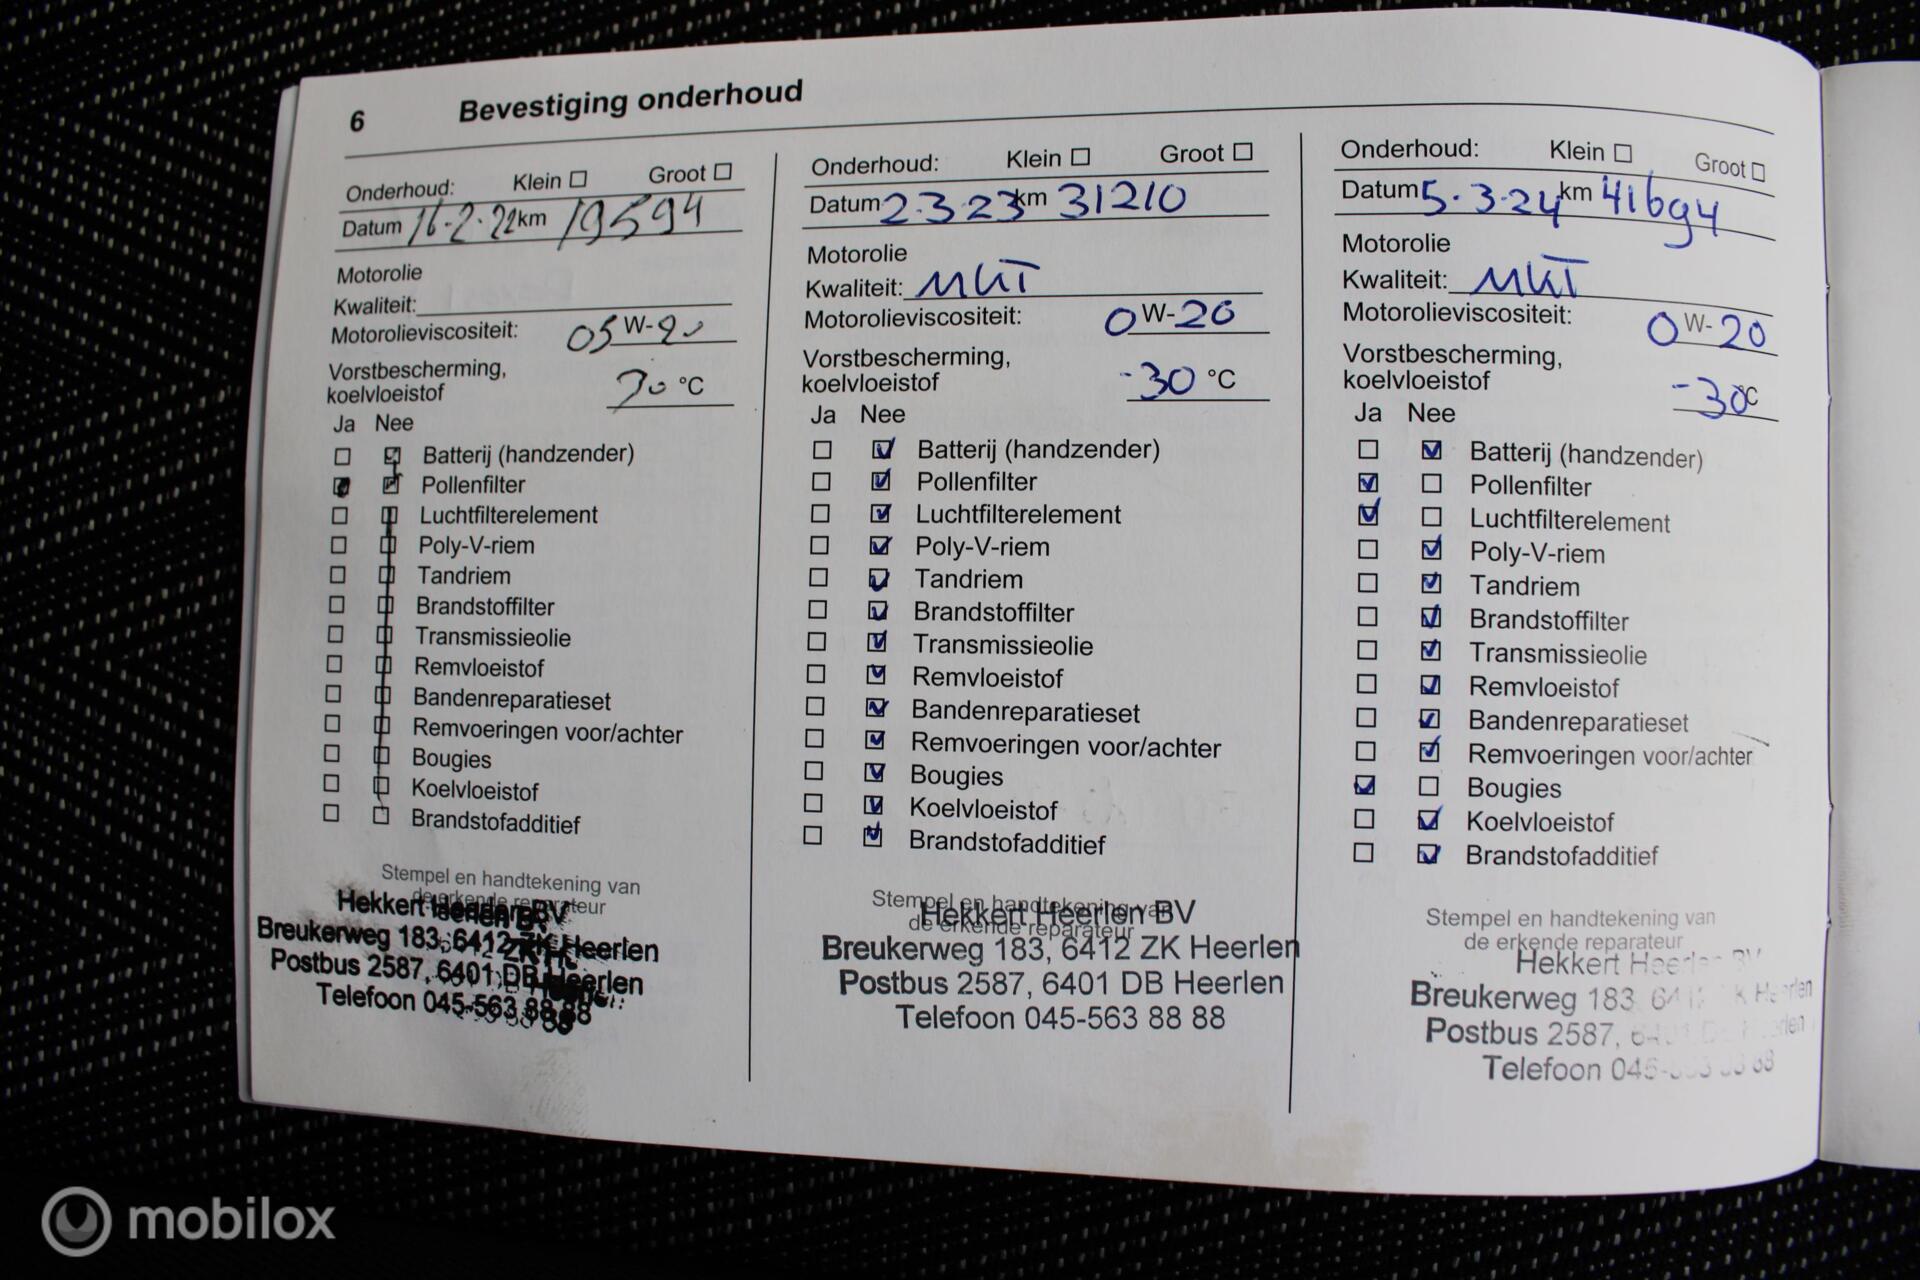 6 Bevestiging onderhoud
Onderhoud: Klein Groot
Datum 16-2-22 km 19594
Motorolie
Kwaliteit:
Motorolieviscositeit: W-
Vorstbescherming,
koelvloeistof 30 °C
Ja Nee
Batterij (handzender)
Pollenfilter
Luchtfilterelement
Poly-V-riem
Tandriem
Brandstoffilter
Transmissieolie
Remvloeistof
Bandenreparatieset
Remvoeringen voor/achter
Bougies
Koelvloeistof
Brandstofadditief
Stempel en handtekening van
de erkende reparateur
Hekkert Heerlen BV
Breukerweg 183, 6412 ZK Heerlen
Postbus 2587, 6401 DB Heerlen
Telefoon 045-563 88 88
Onderhoud: Klein Groot
Datum 2-3-23 km 31210
Motorolie
Kwaliteit: MKT
Motorolieviscositeit: 0 W-20
Vorstbescherming,
koelvloeistof -30 °C
Ja Nee
Batterij (handzender)
Pollenfilter
Luchtfilterelement
Poly-V-riem
Tandriem
Brandstoffilter
Transmissieolie
Remvloeistof
Bandenreparatieset
Remvoeringen voor/achter
Bougies
Koelvloeistof
Brandstofadditief
Stempel en handtekening van
de erkende reparateur
Hekkert Heerlen BV
Breukerweg 183, 6412 ZK Heerlen
Postbus 2587, 6401 DB Heerlen
Telefoon 045-563 88 88
Onderhoud: Klein Groot
Datum 5-3-24 km 41694
Motorolie
Kwaliteit: MKT
Motorolieviscositeit: 0 W-20
Vorstbescherming,
koelvloeistof -30 °C
Ja Nee
Batterij (handzender)
Pollenfilter
Luchtfilterelement
Poly-V-riem
Tandriem
Brandstoffilter
Transmissieolie
Remvloeistof
Bandenreparatieset
Remvoeringen voor/achter
Bougies
Koelvloeistof
Brandstofadditief
Stempel en handtekening van
de erkende reparateur
Hekkert Heerlen BV
Breukerweg 183, 6412 ZK Heerlen
Postbus 2587, 6401 DB Heerlen
Telefoon 045-563 88 88
mobilox